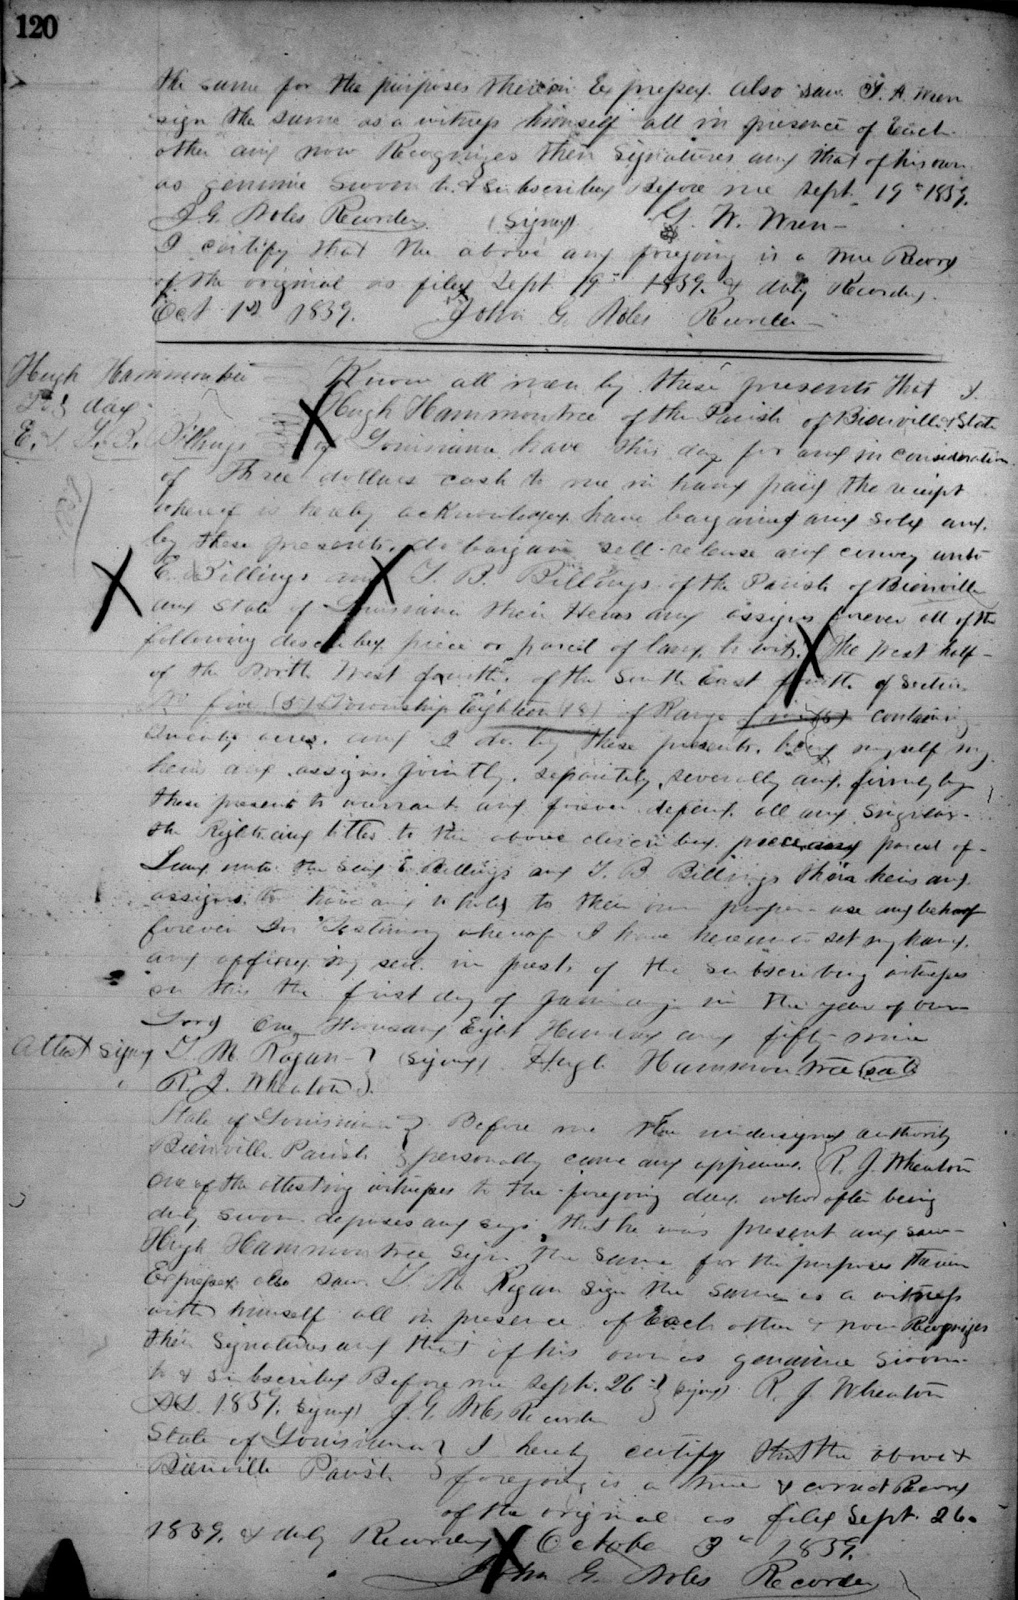 120
the same for the purposes therein Expressed also saw T. A. Wren
sign the same as a witness himself all in presence of Each
other and now Recognizes their Signatures and that of his own
as genuine Sworn to & Subscribed Before me Sept. 19th 1859.
J. G. Noles Recorder (signed) G. W. Wren
I certify that the above and foregoing is a true Record
of the original as filed Sept 19th 1859. & duly Recorded
Oct 1st 1859. John G. Noles Recorder
Hugh Hammontree
To deed
E. & T. B. Billings
Know all men by these presents that I
Hugh Hammontree of the Parish of Bienville & State
of Louisiana have this day for and in consideration
of Three dollars cash to me in hand paid the receipt
whereof is hereby acknowledged have bargained and sold and
by these presents do bargain sell release and convey unto
E. Billings and T. B. Billings of the Parish of Bienville
and State of Louisiana their Heirs and assigns forever all of the
following described piece or parcel of land to wit. The West half
of the North West fourth of the South East fourth of Section
No five (5) Township Eighteen (18) of Range containing
Twenty acres. and I do by these presents bind myself my
heirs and assigns jointly, separately, severally and firmly by
these presents to warrant and forever defend all and singular
the Right and titles to the above described piece and parcel of
Land unto the said E Billings and T. B Billings their heirs and
assigns to have and to hold to their own proper use and behoof
forever In Testimony whereof I have hereunto set my hand
and affixed my seal in prests of the subscribing witnesses
on this the first day of January in the year of our
Lord One Thousand Eight Hundred and fifty nine
Attest signed T. M. Ragan (signed) Hugh Hammontree (seal)
R. J. Wheaton
State of Louisiana Before me the undersigned authority
Bienville Parish personally came and appeared R. J. Wheaton
one of the attesting witnesses to the foregoing deed who after being
duly sworn deposes and says that he was present and saw
Hugh Hammontree sign the same for the purposes therein
Expressed also saw T. M. Ragan sign the same as a witness
with himself all in presence of Each other & now Recognizes
their signatures and that of his own as genuine Sworn
to & Subscribed Before me Sept. 26th signed R. J. Wheaton
AD. 1859. signed J. G. Noles Recorder
State of Louisiana I hereby certify that the above &
Bienville Parish foregoing is a true & correct Record
of the original as filed Sept. 26
1859. & duly Recorded October 3d 1859.
John G. Noles Recorder